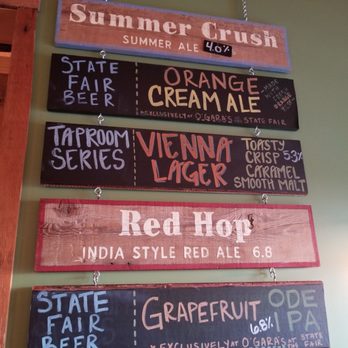 Summer Crush
SUMMER ALE 4.0%
STATE FAIR BEER
ORANGE CREAM ALE
EXCLUSIVELY AT O'GARA'S @ STATE FAIR
TAPROOM SERIES
VIENNA LAGER
TOASTY
CRISP 5.3%
CARAMEL
SMOOTH MALT
Red Hop
INDIA STYLE RED ALE 6.8
STATE FAIR BEER
GRAPEFRUIT 6.8%
ODE IPA
EXCLUSIVELY AT O'GARA'S AT STATE FAIR